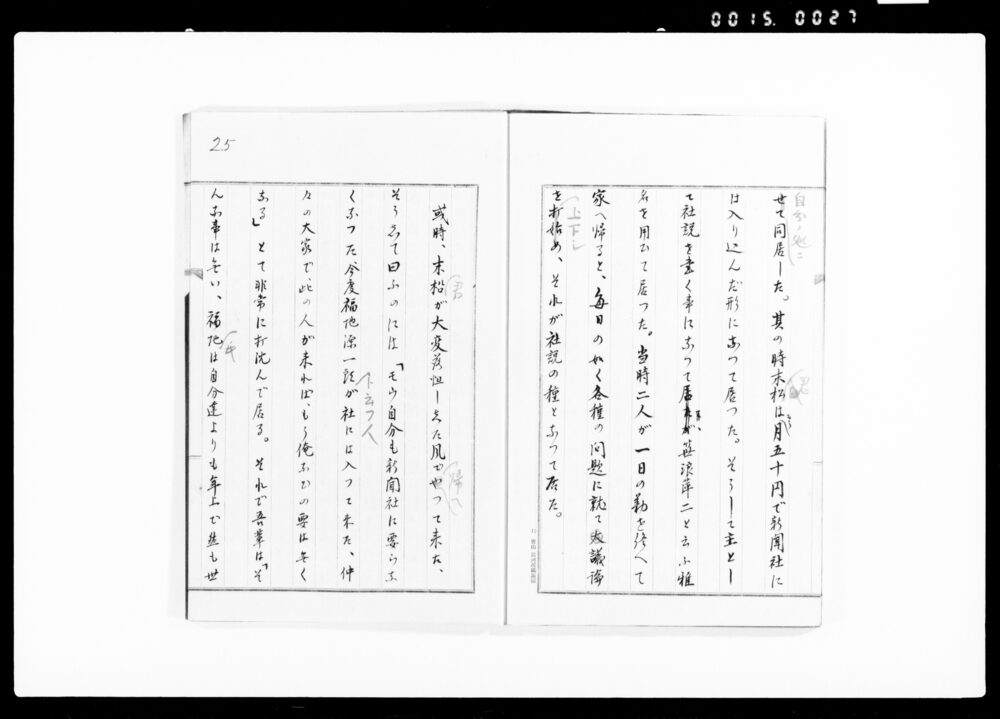 0015 0027
せて同居した。其の時末松は月五十円で新聞社に
は入り込んだ形になつて居つた。そうして主とし
て社説を書く事になつて居が、笹浪萍二と云ふ雅
名を用ひて居つた。当時二人が一日の勤を終へて
家へ帰ると、毎日の如く各種の問題に就て大議論
を打始め、それが社説の種となつて居た。
上下シ
25
或時、末松が大変落胆した風でやつて来た、
そうして曰ふのには「モウ自分も新聞社に要らな
くなつた今度福地源一郎が社には入つて来た、仲
々の大家で、此の人が来れば、もう俺なぞの要は無く
なる」とて非常に打沈んで居る。それで吾輩は「そ
ん な事は無い、福地は自分達よりも年上で然も世
ト云フ人